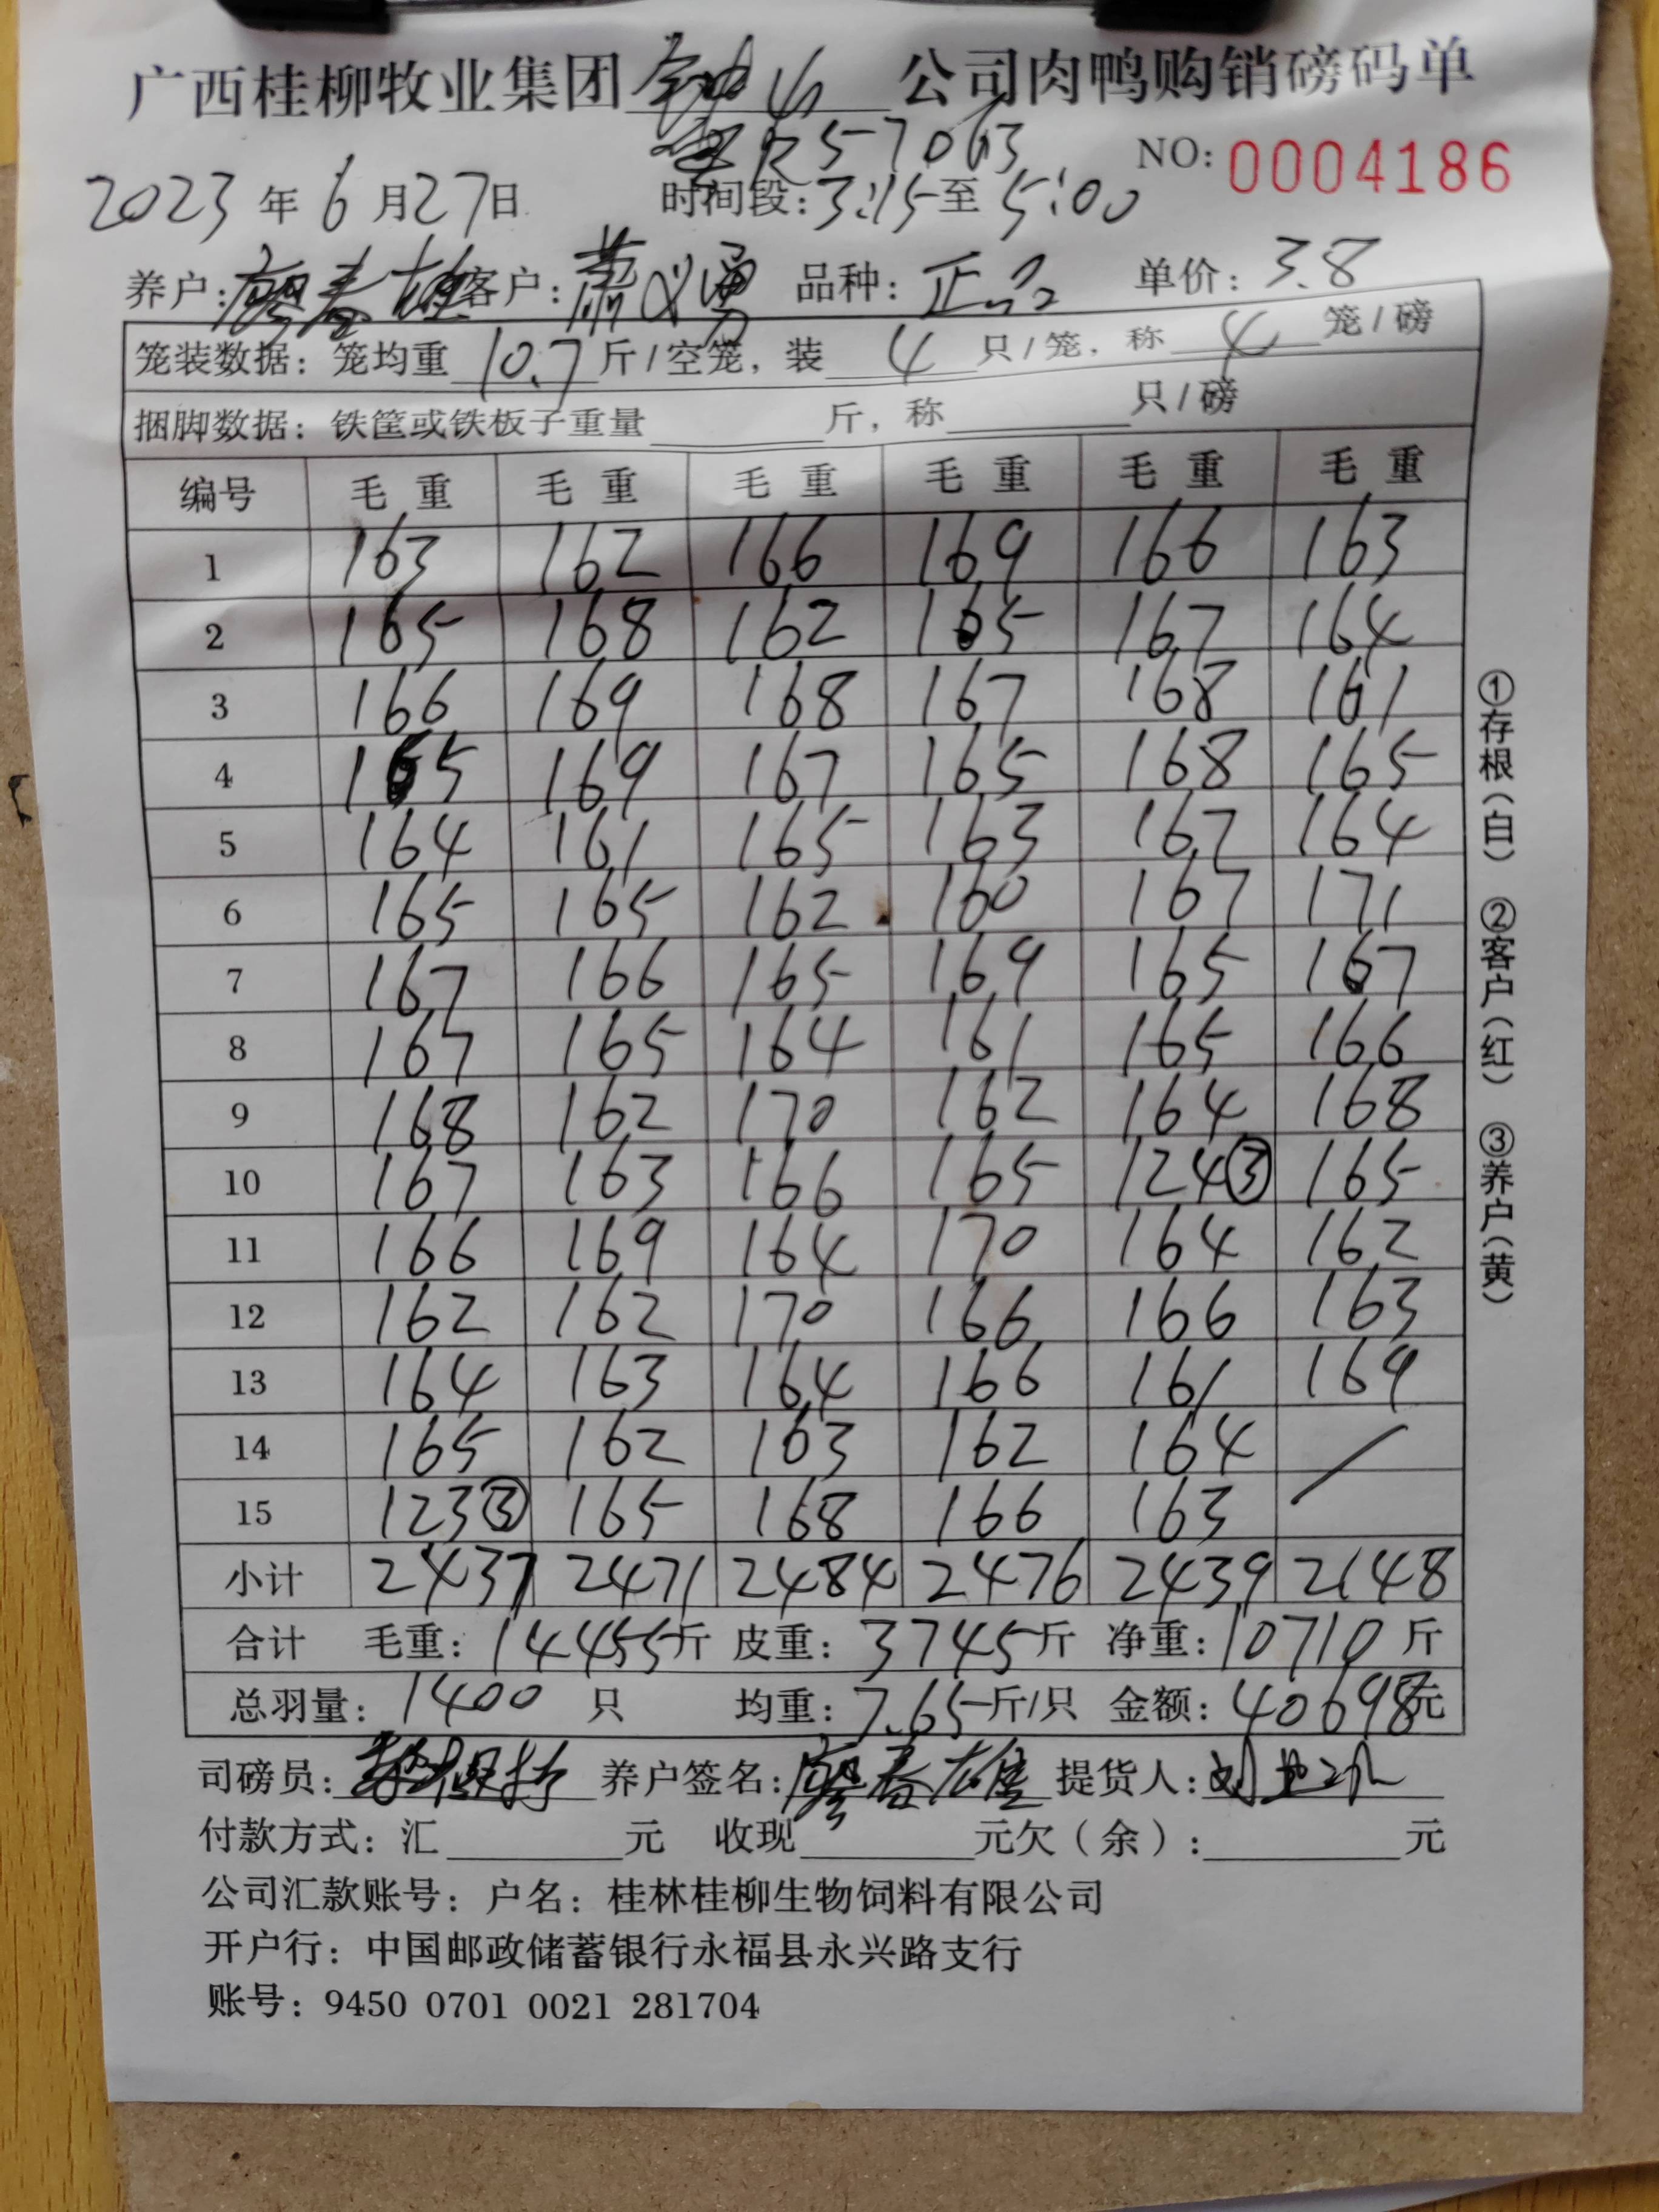 广西桂柳牧业集团 钟山 公司肉鸭购销磅码单
57063
NO: 0004186
2023 年 6 月 27 日 时间段: 3:15 至 5:00
养户: 廖春雄 客户: 萧义勇 品种: 正品 单价: 3.8
笼装数据: 笼均重 10.7 斤/空笼, 装 4 只/笼, 称 4 笼/磅
捆脚数据: 铁筐或铁板子重量 斤, 称 只/磅
编号 毛重 毛重 毛重 毛重 毛重 毛重
1 163 162 166 169 166 163
2 165 168 162 165 167 164
3 166 169 168 167 168 161
4 165 169 167 165 168 165
5 164 161 165 163 167 164
6 165 165 162 160 167 171
7 167 166 165 169 165 167
8 167 165 164 161 165 166
9 168 162 170 162 164 168
10 167 163 166 165 124③ 165
11 166 169 164 170 164 162
12 162 162 170 166 166 163
13 164 163 164 166 161 169
14 165 162 163 162 164 /
15 123③ 165 168 166 163
小计 2437 2471 2484 2476 2439 2148
合计 毛重: 14455 斤 皮重: 3745 斤 净重: 10710 斤
总羽量: 1400 只 均重: 7.65 斤/只 金额: 40698 元
司磅员: 养户签名: 廖春雄 提货人:
付款方式: 汇 元 收现 元欠(余): 元
公司汇款账号: 户名: 桂林桂柳生物饲料有限公司
开户行: 中国邮政储蓄银行永福县永兴路支行
账号: 9450 0701 0021 281704
①存根(白) ②客户(红) ③养户(黄)